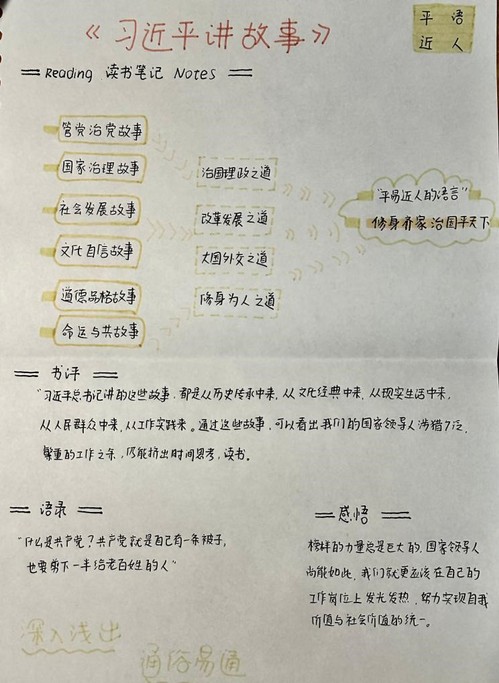 《习近平讲故事》
平 语
近 人
Reading 读书笔记 Notes
管党治党故事
国家治理故事
社会发展故事
文化自信故事
道德品格故事
命运与共故事
治国理政之道
改革发展之道
大国外交之道
修身为人之道
"平易近人的语言"
修身齐家治国平天下
书评
"习近平总书记讲的这些故事,都是从历史传承中来,从文化经典中来,从现实生活中来,
从人民群众中来,从工作实践来。通过这些故事,可以看出我们的国家领导人涉猎广泛,
繁重的工作之余,仍能挤出时间思考,读书。
语录
"什么是共产党?共产党就是自己有一条被子,
也要剪下一半给老百姓的人"
感悟
榜样的力量总是巨大的,国家领导人
尚能如此,我们就更应该在自己的
工作岗位上发光发热,努力实现自我
价值与社会价值的统一。
深入浅出
通俗易通